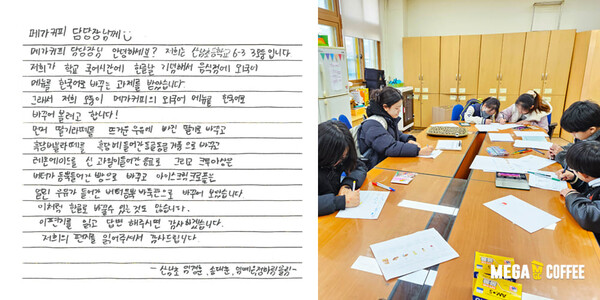 메가커피 담당장님께
메가커피 담당장님 안녕하세요? 저희는 신상초등학교 6-3 3모둠입니다.
저희가 학교 국어시간에 한글을 기념해서 음식점에 외국어
메뉴를 한국어로 바꾸는 과제를 받았습니다.
그래서 저희 모둠이 메가커피의 외국어 메뉴를 한국어로
바꾸어 볼려고 합니다!
먼저 딸기라떼를 뜨거운 우유에 빠진 딸기로 바꾸고
흑당버블라떼를 흑당에 들어간 동글동글 거품으로 바꾸고
레몬에이드를 신 과일이 들어간 음료로 그리고 크로아상은
버터가 듬뿍 들어간 빵으로 바꾸고 아이스크림 크로플은
얼린 우유가 들어간 버터듬뿍 바삭판으로 바꾸어 보았습니다.
이처럼 한글로 바꿀수 있는 것도 많습니다.
이편지를 읽고 답변 해주시면 감사하겠습니다.
저희의 편지를 읽어주셔서 감사드립니다
- 신상초
MEGA MGC COFFEE